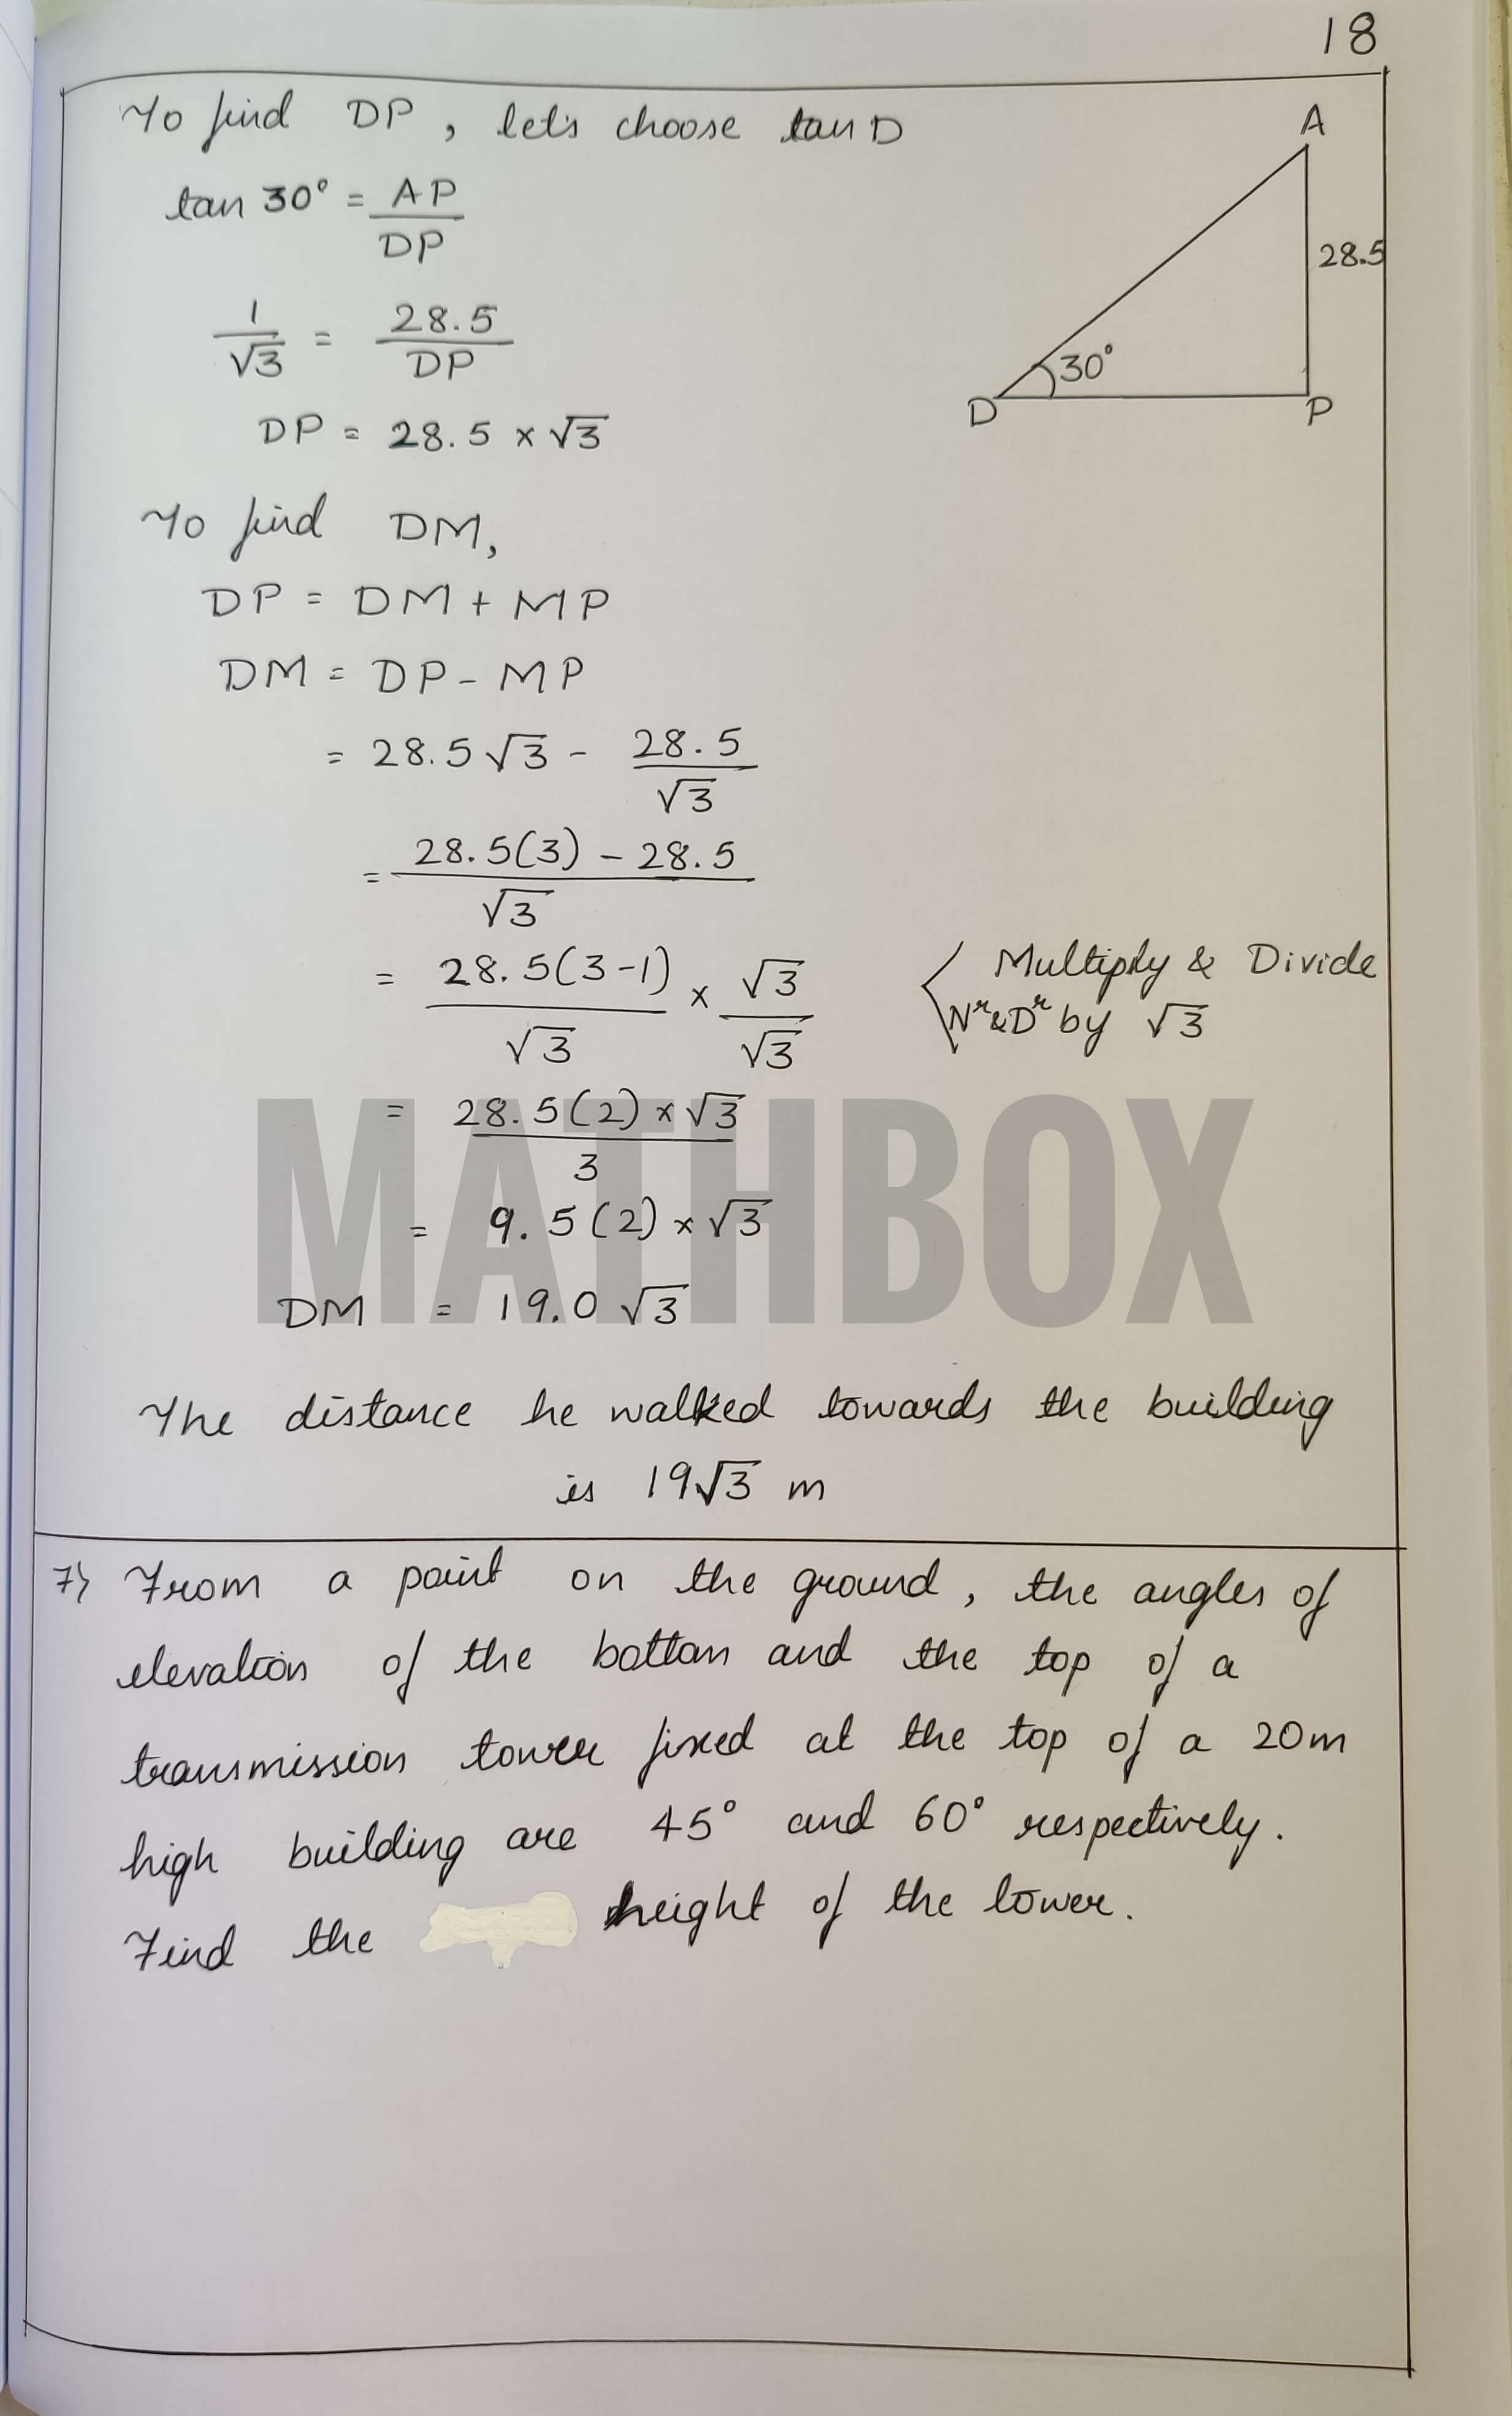 18
To find DP, let's choose tan D
tan 30° = AP/DP
1/√3 = 28.5/DP
DP = 28.5 × √3
A
28.5
30°
D
P
To find DM,
DP = DM + MP
DM = DP - MP
= 28.5√3 - 28.5/√3
= 28.5(3) - 28.5/√3
= 28.5(3-1)/√3 × √3/√3
Multiply & Divide
Nʳ & Dʳ by √3
= 28.5(2) × √3/3
= 9.5(2) × √3
DM = 19.0 √3
MATHBOX
The distance he walked towards the building
is 19√3 m
7) From a point on the ground, the angles of
elevation of the bottom and the top of a
transmission tower fixed at the top of a 20m
high building are 45° and 60° respectively.
Find the height of the tower.